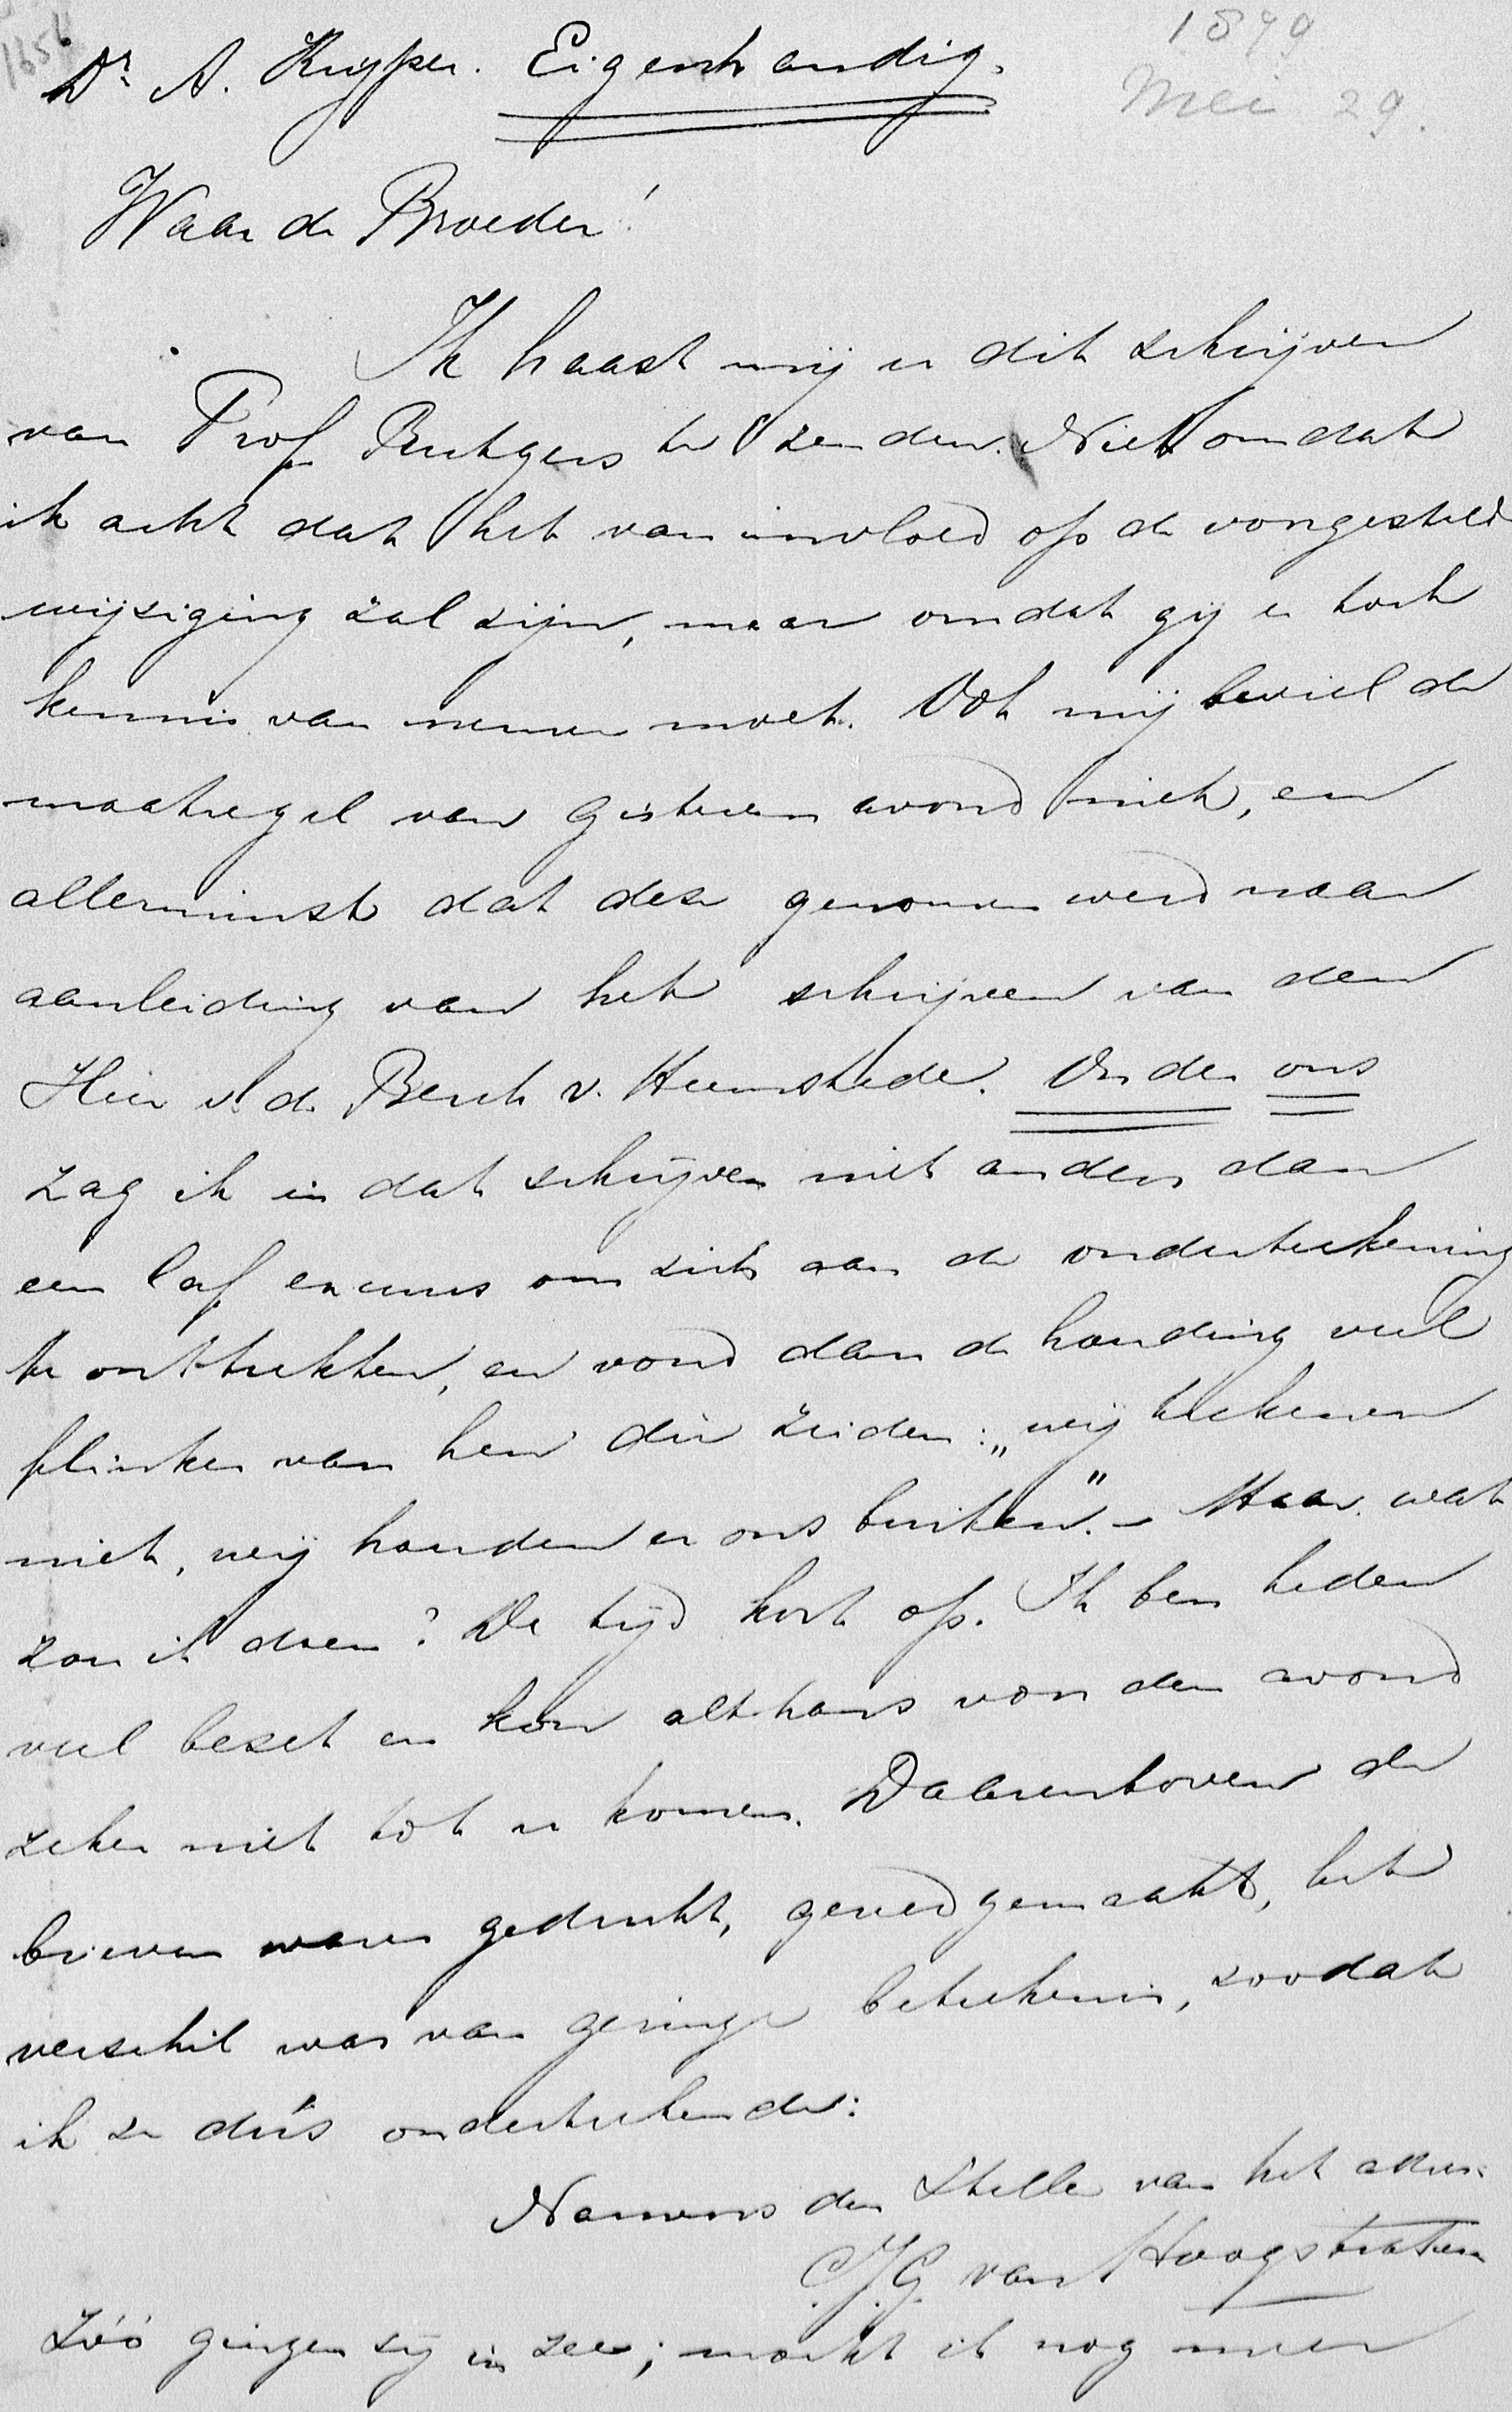 1656
Dr. A. Kuyper. Eigenhandig.
1899
Mei 29.
Waarde Broeder!
Ik haast mij u dit schrijven
van Prof Rutgers te zenden. Niet omdat
ik acht dat het van invloed op de voorgesteld
wijziging zal zijn, maar omdat gij er toch
kennis van nemen moet. Ook mij beviel de
maatregel van gisteren avond niet, en
allerminst dat deze genomen werd naar
aanleiding van het schrijven van den
Heer v. d. Berch v. Heemstede. Onder ons
zag ik in dat schrijven niet anders dan
een laf excuus om zich aan de onderteekening
te onttrekken, en vond dan de houding veel
flinker van hen die zeiden: „wij teekenen
niet, wij houden er ons buiten." - Maar wat
zou ik doen? De tijd kort op. Ik ben heden
veel bezet en kon althans voor den avond
zeker niet tot u komen. Daarenboven de
brieven waren gedrukt, gereed gemaakt, het
verschil was van geringe beteekenis, zoodat
ik ze dus onderteekende:
Namens den Steller van het adres:
J.G. van Hoogstraten
Zóó gingen zij in zee; mocht ik nog meer